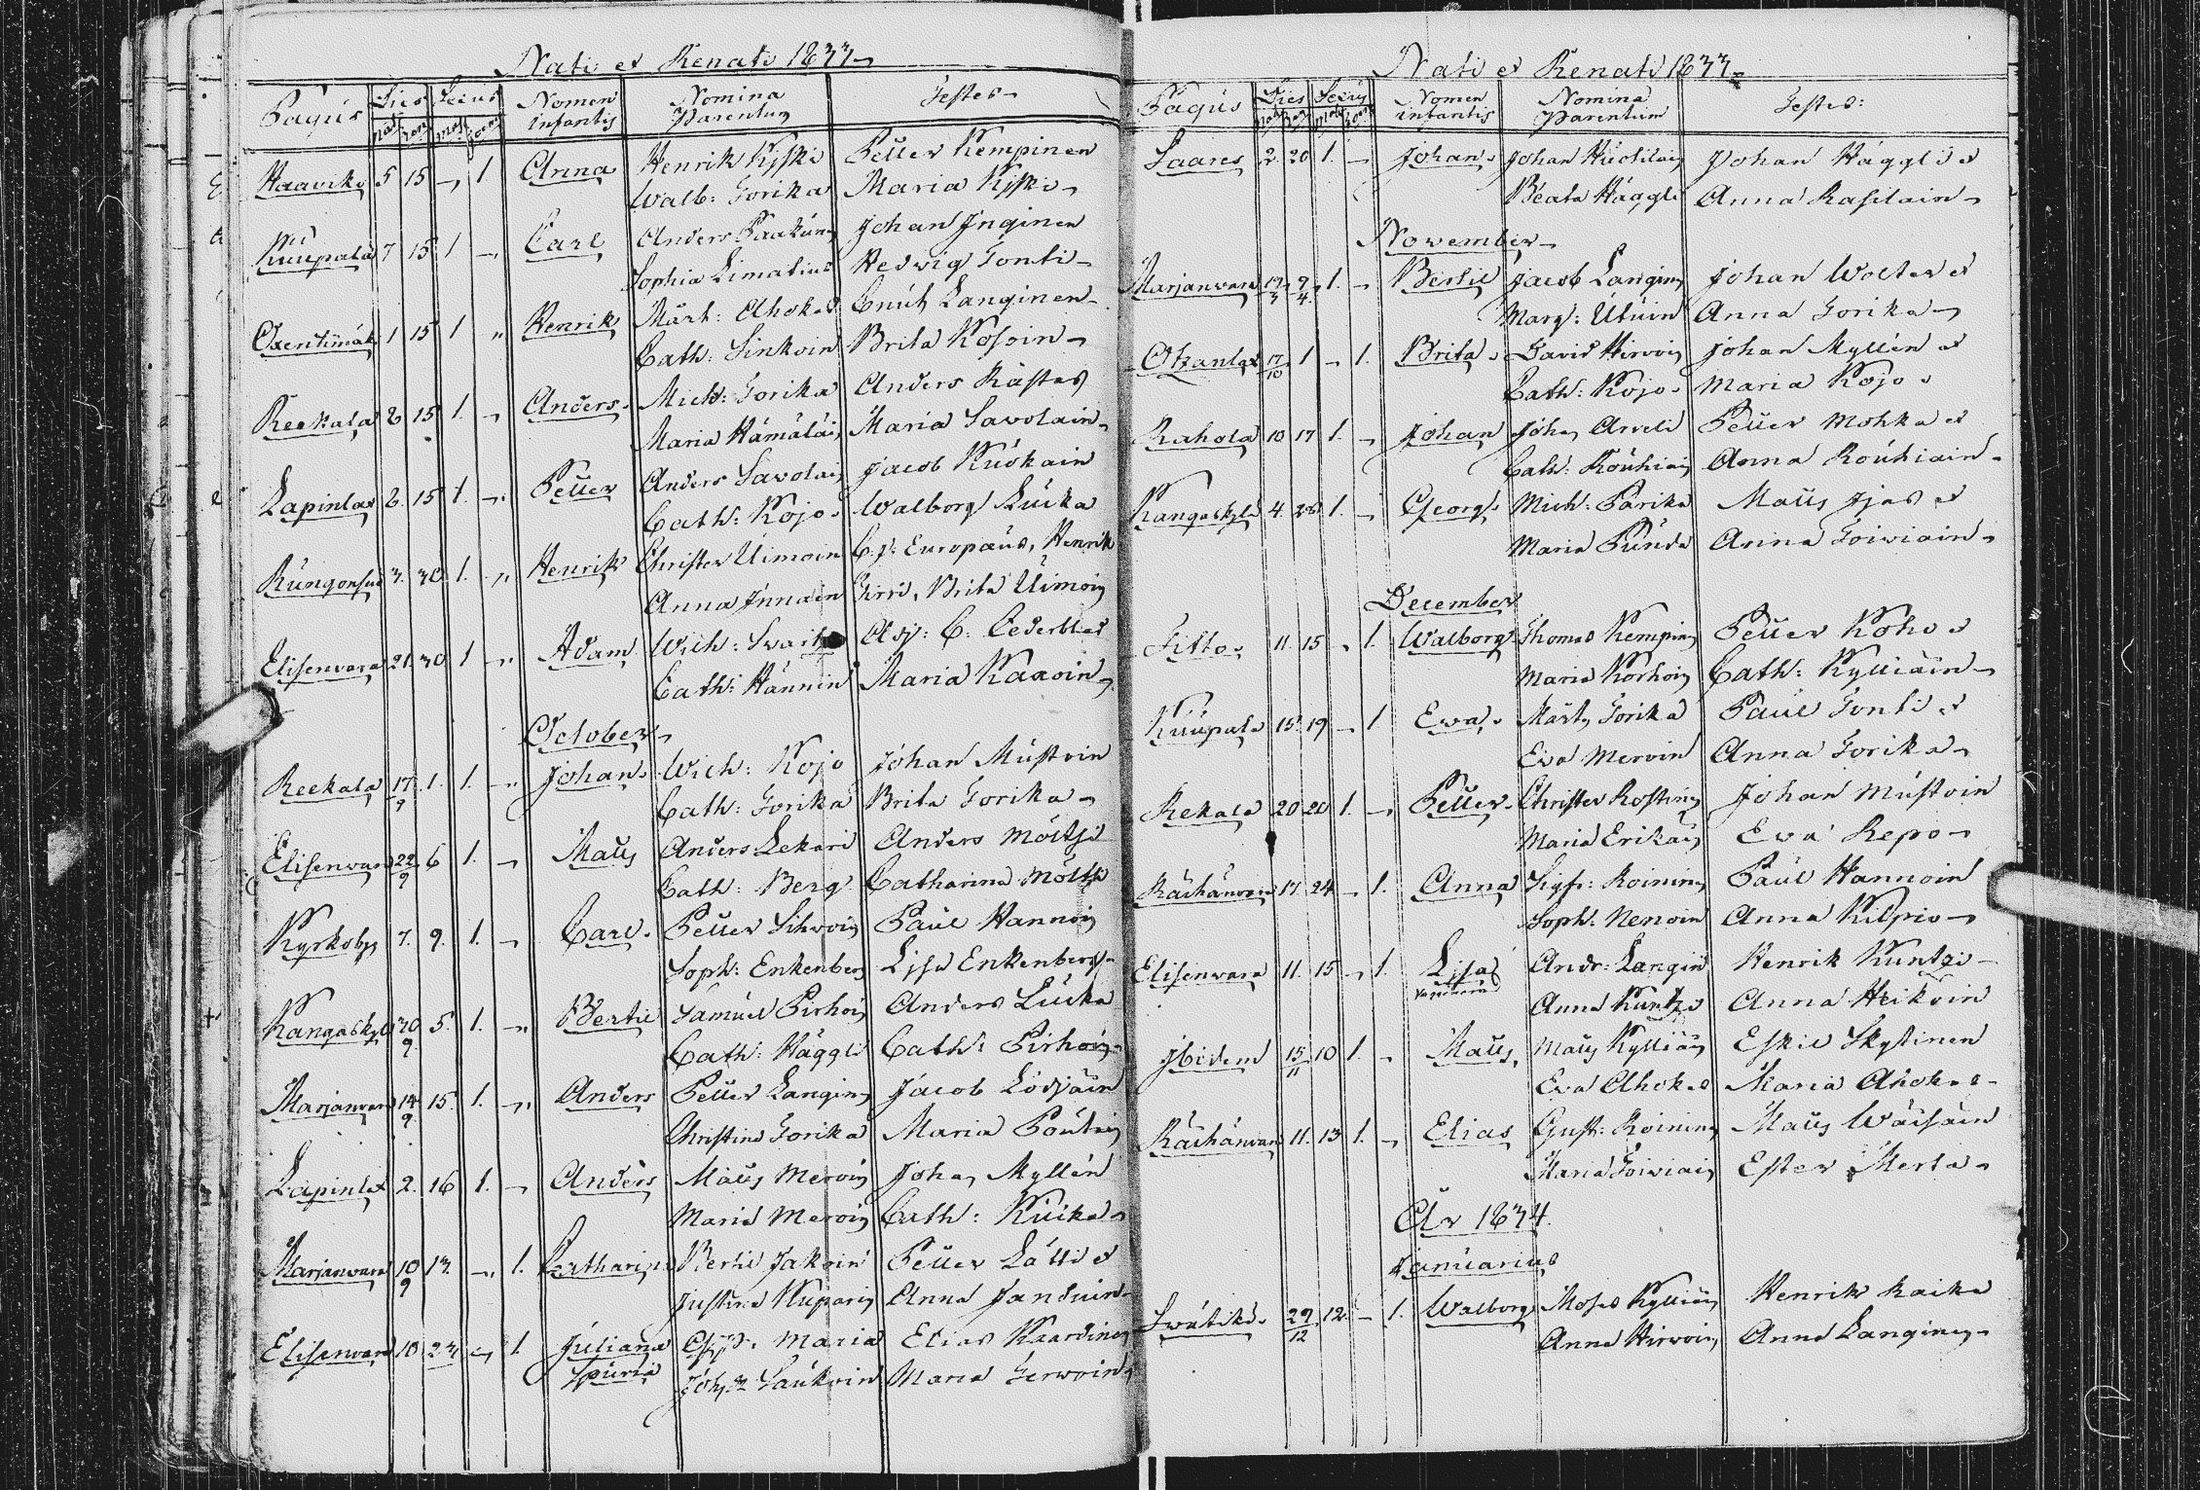 Nati et Renati 1833
Pagus Dies Sexus Nomen Infantis Nomina Parentum Testes
nat. ren. masc. foem.
Haaviko 5 15 – 1 Anna Henrik Kiski Petter Kempinen
Walb: Torika Maria Kiski
Kuupala 7 15 1 – Carl Anders Johan Inginen
Sophia Limatius Hedvig Tonti
1 15 1 „ Henrik Märt: Ahokas Cnut Langinen
Cath: Sinkoin Brita Kosoin
Reekala 8 15 1. – Anders. Mich: Torika Anders Rastas
Maria Hämäläi Maria Savolain
Lapinlax 8. 15 1. – Petter Anders Savolai Jacob Kuokain
Cath: Kojo. Walborg Luika
3. 30 1. – Henrik Christer Uimoin C. J: Europæus, Henrik
Anna Innain Brita Uimoin
Elisenvara 21. 30 1 – Adam Wilh: Adj: C: Cederblad
Cath: Hännin Maria Kaxoin
October
Reekala 17/9 1. 1. – Johan. Wich: Kojo Johan Mustoin
Cath: Torika Brita Torika
Elisenvara 22/9 6 1. – Matts Anders Lekari Anders Möltsi
Cath: Berg Catharina Möltsi
Kyrkoby 7. 9. 1. – Carl. Petter Sihvoin Paul Hannoin
Soph: Enkenberg Lisa Enkenberg
Kangaskyl 30/9 5. 1. – Bertil Samuel Pirhoin Anders Luika
Cath: Häggli Cath: Pirhoin
Marjanvara 14/9 15. 1. – Anders Petter Langin Jacob Lödjäin
Christina Torika Maria Poutain
Lapinlax 2. 16 1. – Anders Matts Meroin Johan Myllen
Maria Meroin Cath: Kuika
Marjanvara 10/9 13. – 1. Catharina Bertil Jakoin Petter Lätti et
Justina Kuparin Anna Janduin
Elisenvara 10 23 – 1 Juliana Maria Elias Kaardinen
Spuria Laukoin Maria Terwoin
Nati et Renati 1833
Pagus Dies Sexus Nomen infantis Nomina Parentum Testes:
Saares 2. 20 1. – Johan. Johan Huotilain Johan Häggli et
Beata Häggli Anna Rasilain
November
Marjanvara 19/3 9/4 1. – Bertil Jacob Langin Johan Wolter et
Marg: Utuin Anna Torika
Otzanlax 17/10 1 – 1. Brita. David Hirvoin Johan Myllén et
Cath: Kojo. Maria Kojo.
Rahola 10 17 1. – Johan Johan Arveli Petter Mohka et
Cath: Rouhiain Anna Rouhiain
Kangaskylä 4. 28 1. – Georg. Mich: Parika Matts Ijas et
Maria Punda Anna Toiviain
December
Tiitto. 11. 15 – 1. Walborg. Thomas Kempin Petter Koho et
Maria Korhoin Cath: Kylliäin
Kuupala 15. 19 – 1 Ewa. Märt. Torika Paul Tonti et
Eva Meroin Anna Torika
Rekala 20 20 1. – Petter. Christer Rosting Johan Mustoin
Maria Erikain Ewa Repo
Räihänvara 17. 24 – 1. Anna Sigfr: Roining Paul Hannoin
Soph. Nenoin Anna Kilpio
Elisenvara 11. 15 – 1. Lisa Andr: Langin Henrik Kuntzi
Anna Kuntzi Anna Heikoin
Ibidem 15/11 10 1. – Matts. Matts Kylliäin Eskil Skytinen
Eva Ahokas Maria Ahokas
Räihänvara 11. 13 1. – Elias Gust: Roining Matts Wäisäin
Maria Toiviain Ester Merta
År 1834.
Januarius
29/12 12. – 1. Walborg Moses Kylliäin Henrik Raika
Anna Hirvoin Anna Langinen